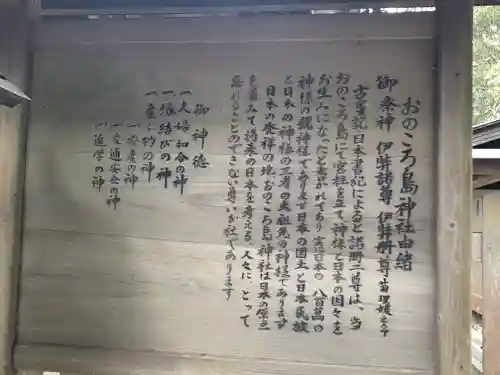 おのころ島神社由緒
御祭神 伊弉諾尊 伊弉冊尊
古事記、日本書紀によると諾冊二尊は、当
おのころ島にて宮柱を立て、神様と日本の国々を
お生みになったと書かれており 実に日本の 八百萬の
神様の親神様であります日本の国土と日本民族
と日本の神様の三者の大祖先の神様であります
日本の発祥の地、おのころ島神社は日本の原点
を省みて将来の日本を考える、人々に とって
忘れることのできない尊いお社であります
御神徳
一、夫婦和合の神
一、縁結びの神
一、産の神
一、交通安全の神
一、進学の神